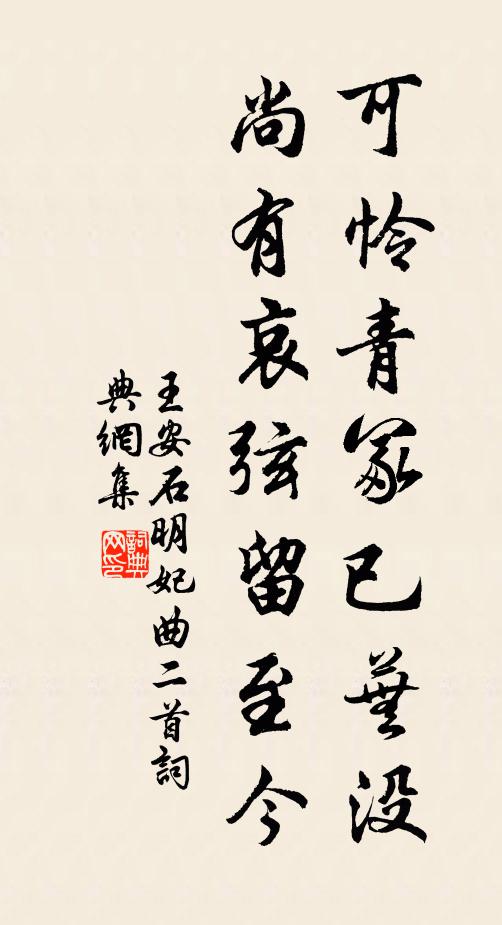 可怜青冢已蕪没
尚有哀弦留至今
王安石明妃曲二首詞
典網集
詞典网印